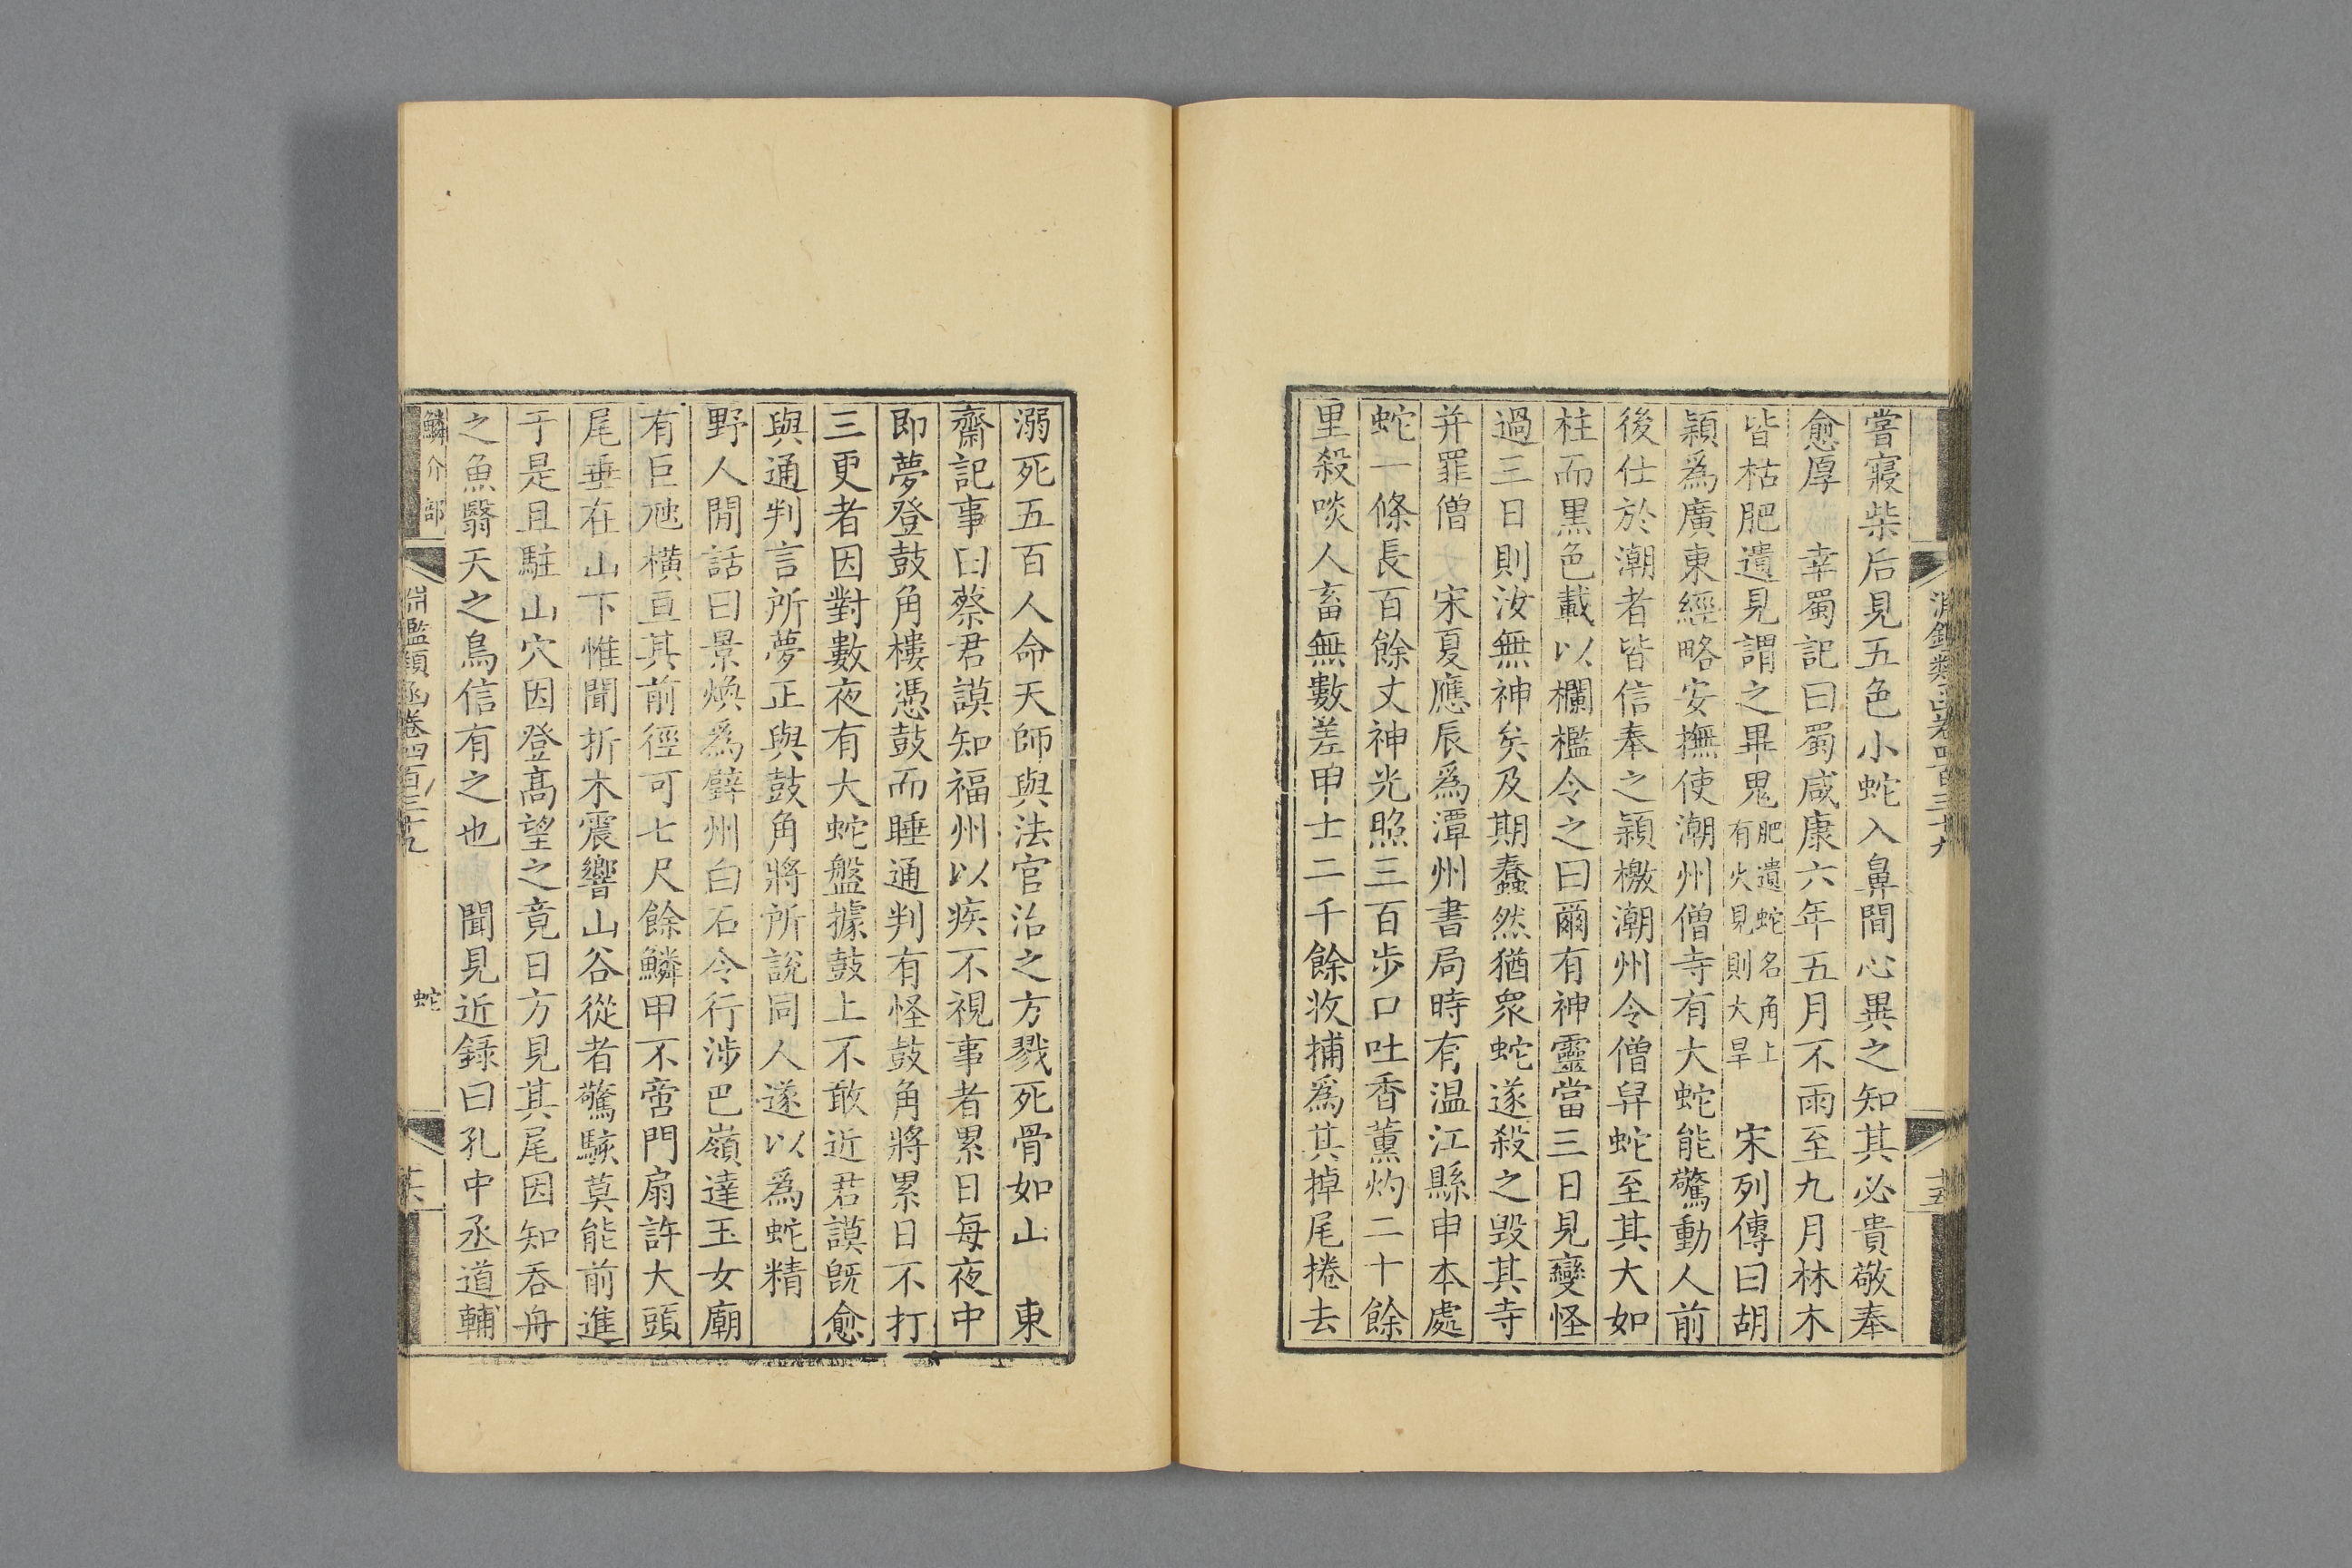 淵鑑類函卷四百三十九
十五
嘗寢柴后見五色小蛇入鼻間心異之知其必貴敬奉
愈厚　幸蜀記曰蜀咸康六年五月不雨至九月林木
皆枯肥遺見謂之畢鬼肥遺蛇名角上有火見則大旱　宋列傳曰胡
穎爲廣東經略安撫使潮州僧寺有大蛇能驚動人前
後仕於潮者皆信奉之穎檄潮州令僧舁蛇至其大如
柱而黒色載以欄檻令之曰爾有神靈當三日見變怪
過三日則汝無神矣及期蠢然猶衆蛇遂殺之毀其寺
并罪僧　宋夏應辰爲潭州書局時有温江縣申本處
蛇一條長百餘丈神光照三百步口吐香薰灼二十餘
里殺啖人畜無數差甲士二千餘收捕爲其掉尾捲去
溺死五百人命天師與法官治之方戮死骨如山　東
齋記事曰蔡君謨知福州以疾不視事者累日每夜中
即夢登鼓角樓憑鼓而睡通判有怪鼓角將累日不打
三更者因對數夜有大蛇盤據鼓上不敢近君謨旣愈
與通判言所夢正與鼓角將所說同人遂以爲蛇精
野人閒話曰景煥爲壁州白石令行涉巴嶺達玉女廟
有巨虵橫亘其前徑可七尺餘鱗甲不啻門扇許大頭
尾垂在山下惟聞折木震響山谷從者驚駭莫能前進
于是且駐山穴因登高望之竟日方見其尾因知吞舟
之魚翳天之鳥信有之也　聞見近録曰孔中丞道輔
鱗介部
淵鑑類函卷四百三十九
蛇
十六